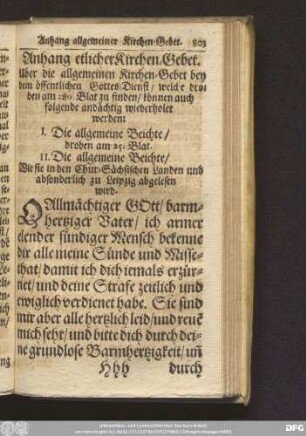 Anhang allgemeiner Kirchen-Gebet. 803
Anhang etlicher Kirchen-Gebet.
Uber die allgemeinen Kirchen-Gebet bey
dem öffentlichen Gottes-Dienst/ welche dro-
ben am 180 Blat zu finden/ können auch
folgende andächtig wiederholet
werden:
I. Die allgemeine Beichte/
droben am 25. Blat.
II. Die allgemeine Beichte/
Wie sie in den Chur-Sächsischen Landen und
absonderlich zu Leipzig abgelesen
wird.
O Allmächtiger GOtt/ barm-
hertziger Vater/ ich armer
elender sündiger Mensch bekenne
dir alle meine Sünde und Misse-
that/ damit ich dich iemals erzür-
net/ und deine Strafe zeitlich und
ewiglich verdienet habe. Sie sind
mir aber alle hertzlich leid/ und reuē
mich sehr/ und bitte dich durch dei-
ne grundlose Barmhertzigkeit/ uñ
Hhh durch